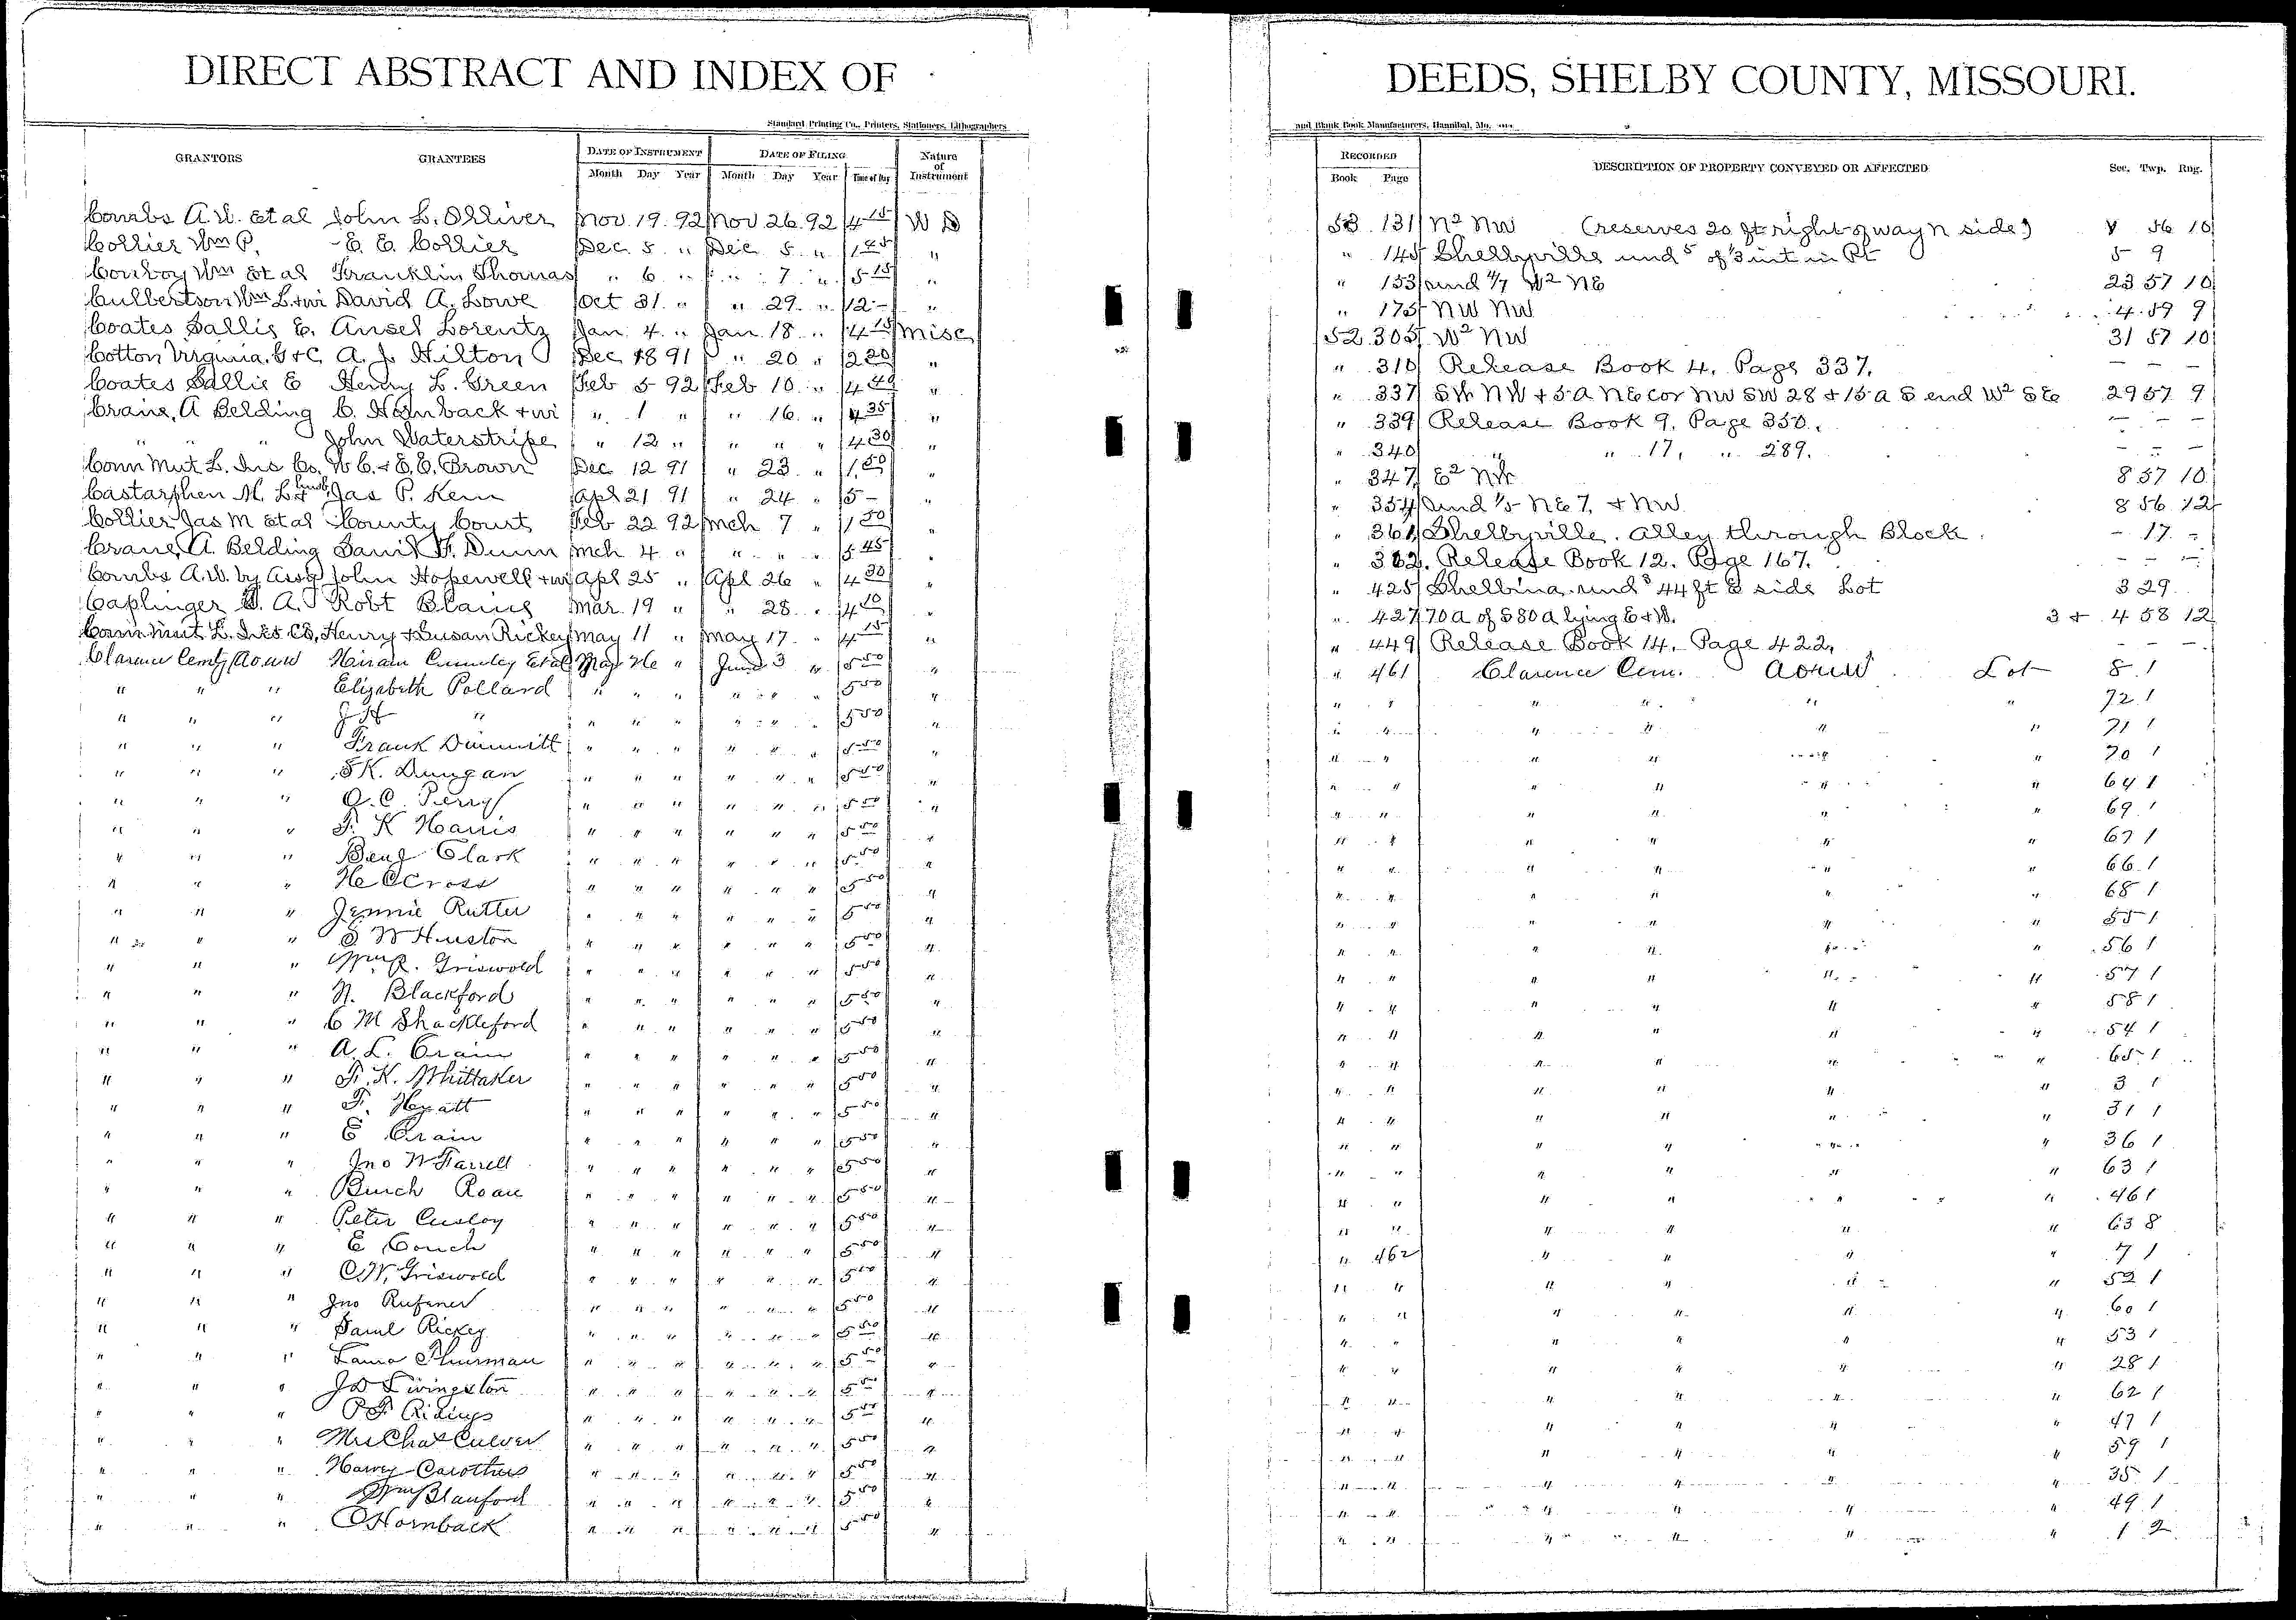 DIRECT ABSTRACT AND INDEX OF
Standard Printing Co., Printers, Stationers, Lithographers
GRANTORS GRANTEES DATE OF INSTRUMENT DATE OF FILING Nature of Instrument
Month Day Year Month Day Year Time of Day
Combs A.W. et al John L. Olliver Nov. 19. 92 Nov 26. 92 4 15 W D
Collier Wm P. E. E. Collier Dec. 5 " Dec. 5 " 1 45 "
Conboy Wm et al Franklin Thomas " 6 " " 7 " 5 15 "
Culbertson Wm L. + wi David A. Lowe Oct 31. " " 29. " 12 - "
Coates Sallie E. Ansel Lorentz Jan. 4. " Jan. 18 " 4 15 Misc
Cotton Virginia. G + C A. J. Hilton Dec 18 91 " 20 " 2 20 "
Coates Sallie E Henry L. Green Feb 5 92 Feb 10 " 4 40 "
Crane, A Belding C. Hornback + wi " 1 " " 16 " 4 35 "
" " " John Waterstripe " 12 " " " " 4 30 "
Conn Mut L. Ins Co. W C. + E. E. Brown Dec 12 91 " 23 " 1 50 "
Castarphen M. L. Jas P. Kern Apl 21 91 " 24 " 5 - "
Collier Jas M et al County Court Feb 22 92 Mch 7 " 1 50 "
Crane, A. Belding Saml F. Dunn Mch 4 " " " " 5 45 "
Combs A.W. by Assg John Hopewell + wi Apl 25 " Apl 26 " 4 30 "
Caplinger A. Robt Blains Mar. 19 " " 28 " 4 10 "
Conn Mut L. Ins Co, Henry + Susan Rickey May 11 " May 17 " 4 15 "
Clarence Cemty AOUW Hiram Cumley et al May 26 " June 3 " 5 50 "
" " " Elizabeth Pollard " " " " " " 5 50 "
" " " J H " " " " " " " 5 50 "
" " " Frank Dimmitt " " " " " " 5 50 "
" " " S K. Dungan " " " " " " 5 50 "
" " " O. C. Perry " " " " " " 5 50 "
" " " F. K Harris " " " " " " 5 50 "
" " " Benj Clark " " " " " " 5 50 "
" " " H C Cross " " " " " " 5 50 "
" " " Jennie Rutter " " " " " " 5 50 "
" " " S W Huston " " " " " " 5 50 "
" " " Wm R. Griswold " " " " " " 5 50 "
" " " N. Blackford " " " " " " 5 50 "
" " " C M Shackleford " " " " " " 5 50 "
" " " A. L. Crain " " " " " " 5 50 "
" " " F. K. Whittaker " " " " " " 5 50 "
" " " F. Hyatt " " " " " " 5 50 "
" " " E Crain " " " " " " 5 50 "
" " " Jno W Farrell " " " " " " 5 50 "
" " " Burch Roan " " " " " " 5 50 "
" " " Peter Cusloy " " " " " " 5 50 "
" " " E Couch " " " " " " 5 50 "
" " " C. W. Griswold " " " " " " 5 50 "
" " " Jno Rufener " " " " " " 5 50 "
" " " Saml Rickey " " " " " " 5 50 "
" " " Laura Thurman " " " " " " 5 50 "
" " " J D Livingston " " " " " " 5 50 "
" " " P F Ridings " " " " " " 5 50 "
" " " Mrs Chas Culver " " " " " " 5 50 "
" " " Harvey Carothers " " " " " " 5 50 "
" " " Wm Blanford " " " " " " 5 50 "
" " " C Hornback " " " " " " 5 50 "
DEEDS, SHELBY COUNTY, MISSOURI.
and Blank Book Manufacturers, Hannibal, Mo.
RECORDED DESCRIPTION OF PROPERTY CONVEYED OR AFFECTED Sec. Twp. Rng.
Book Page
53 131 N2 NW (reserves 20 ft right of way N side) 56 10
" 145 Shelbyville und 5 of 1/3 int in Pt 5 9
" 153 und 4/7 W2 NE 23 57 10
" 175 NW NW 4 59 9
52 305 W2 NW 31 57 10
" 310 Release Book 4. Page 337. - - -
" 337 SW NW + 5 a NE cor NW SW 28 + 15 a S end W2 SE 29 57 9
" 339 Release Book 9. Page 350. - - -
" 340 " " 17, " 289. - - -
" 347 E2 NW 8 57 10
" 354 und 1/5 NE 7, + NW 8 56 12
" 361 Shelbyville. Alley through Block - 17 -
" 362. Release Book 12. Page 167. - - -
" 425 Shelbina. und 44 ft E side Lot 3 29
" 427 70 a of S 80 a lying E + W. 3 + 4 58 12
" 449 Release Book 14. Page 422. - - -
" 461 Clarence Cem. AOUW Lot 8 1
" " " " " " 72 1
" " " " " " 71 1
" " " " " " 70 1
" " " " " " 64 1
" " " " " " 69 1
" " " " " " 67 1
" " " " " " 66 1
" " " " " " 68 1
" " " " " " 55 1
" " " " " " 56 1
" " " " " " 57 1
" " " " " " 58 1
" " " " " " 54 1
" " " " " " 65 1
" " " " " " 3 1
" " " " " " 31 1
" " " " " " 36 1
" " " " " " 63 1
" " " " " " 46 1
" " " " " " 63 8
" 462 " " " " 7 1
" " " " " " 52 1
" " " " " " 60 1
" " " " " " 53 1
" " " " " " 28 1
" " " " " " 62 1
" " " " " " 47 1
" " " " " " 59 1
" " " " " " 35 1
" " " " " " 49 1
" " " " " " 1 2